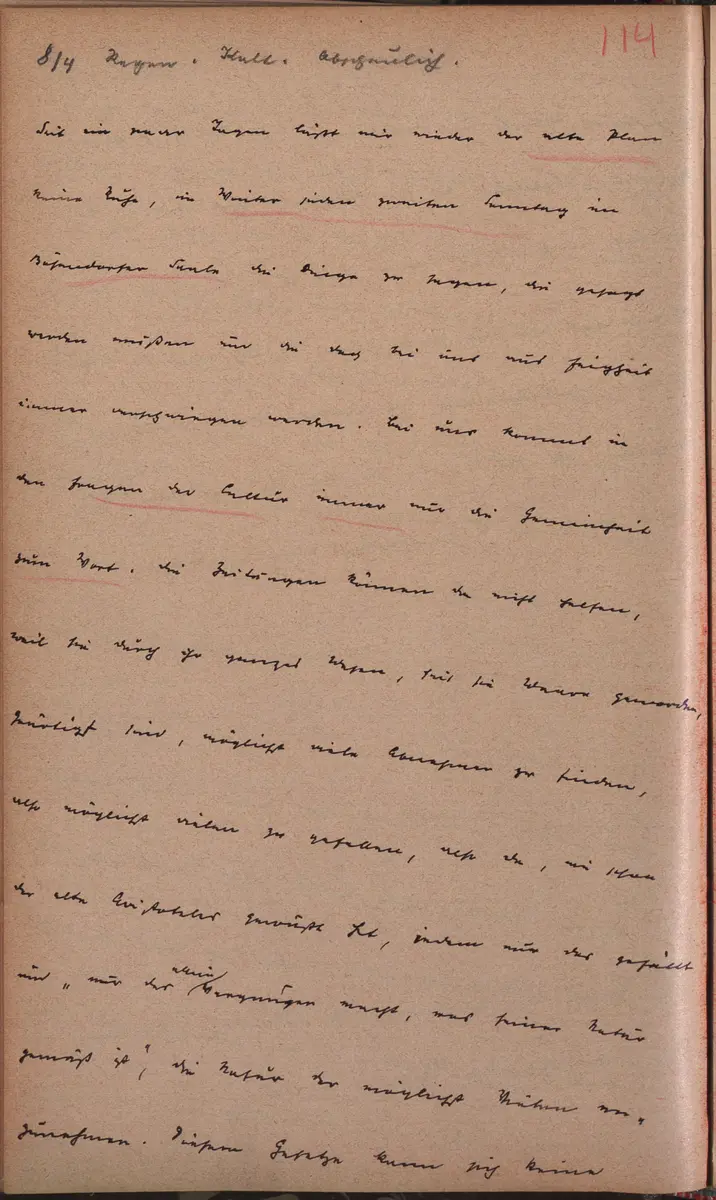 114
8/4 Regen. Kalt. Abscheulich.
Seit ein paar Tagen läßt mir wieder der alte Plan
keine Ruhe, im Winter jeden zweiten Sonntag im
Bösendorfer Saale die Dinge zu sagen, die gesagt
werden müßen und die doch bei uns aus Feigheit
immer verschwiegen werden. Bei uns kommt in
den Fragen der Cultur immer nur die Gemeinheit
zum Wort. Die Zeitungen können da nicht helfen,
weil sie durch ihr ganzes Wesen, seit sie Waare geworden,
genötigt sind, möglichst viele Abnehmer zu finden,
also möglichst vielen zu gefallen, also da, wie schon
der alte Aristoteles gewußt hat, jedem nur das gefällt
und „nur das allein Vergnügen macht, was seiner Natur
gemäß ist", die Natur der möglichst Vielen an-
zunehmen. Diesem Gesetze kann sich keine